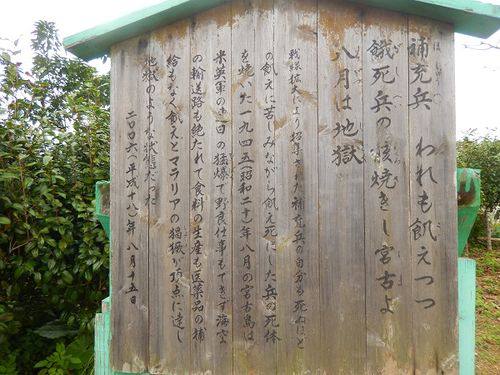 補充兵 われも飢えつつ
餓死兵の骸焼きし宮古よ
八月は地獄
戦線拡大により招集された補充兵の自分も死ぬほど
の飢えに苦しみながら飢え死にした兵の死体
を焼いた一九四五(昭和二十)年八月の宮古島は
米英軍の連日の猛爆で野良仕事もできず海空
の輸送路も絶たれて食料の生産も医薬品の補
給もなく飢えとマラリアの猖獗が頂点に達し
地獄のような状態だった
二〇〇六(平成十八)年 八月十五日